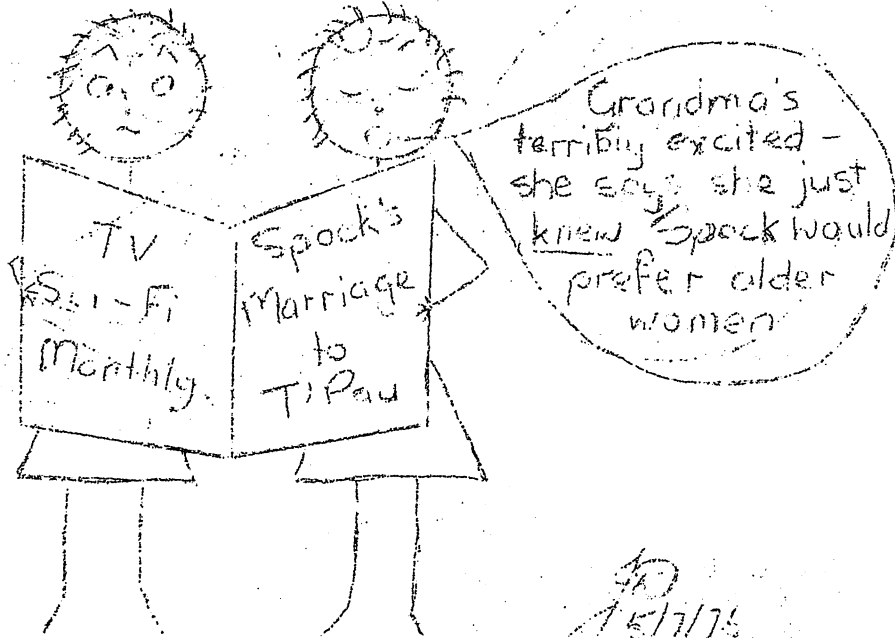 TV
Sci-Fi
Monthly.
Spock's
Marriage
to
T'Pau
Grandma's
terribly excited -
she says she just
knew Spock would
prefer older
women